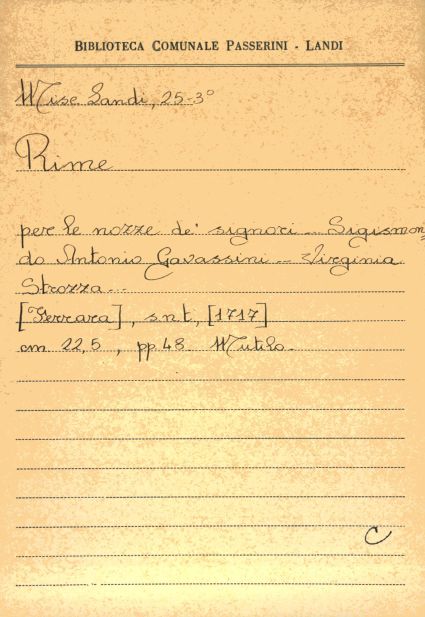 BIBLIOTECA COMUNALE PASSERINI - LANDI
Misc. Landi, 25-3°
Rime
per le nozze de' signori ... Sigismon
do Antonio Gavassini ... Virginia
Strozza...
[Ferrara], s.n.t, [1717]
cm 22,5, pp. 48. Mutilo.
C